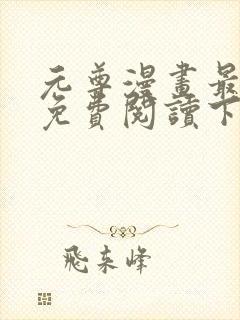 元尊漫畫最
免費閱讀下
飛來峰